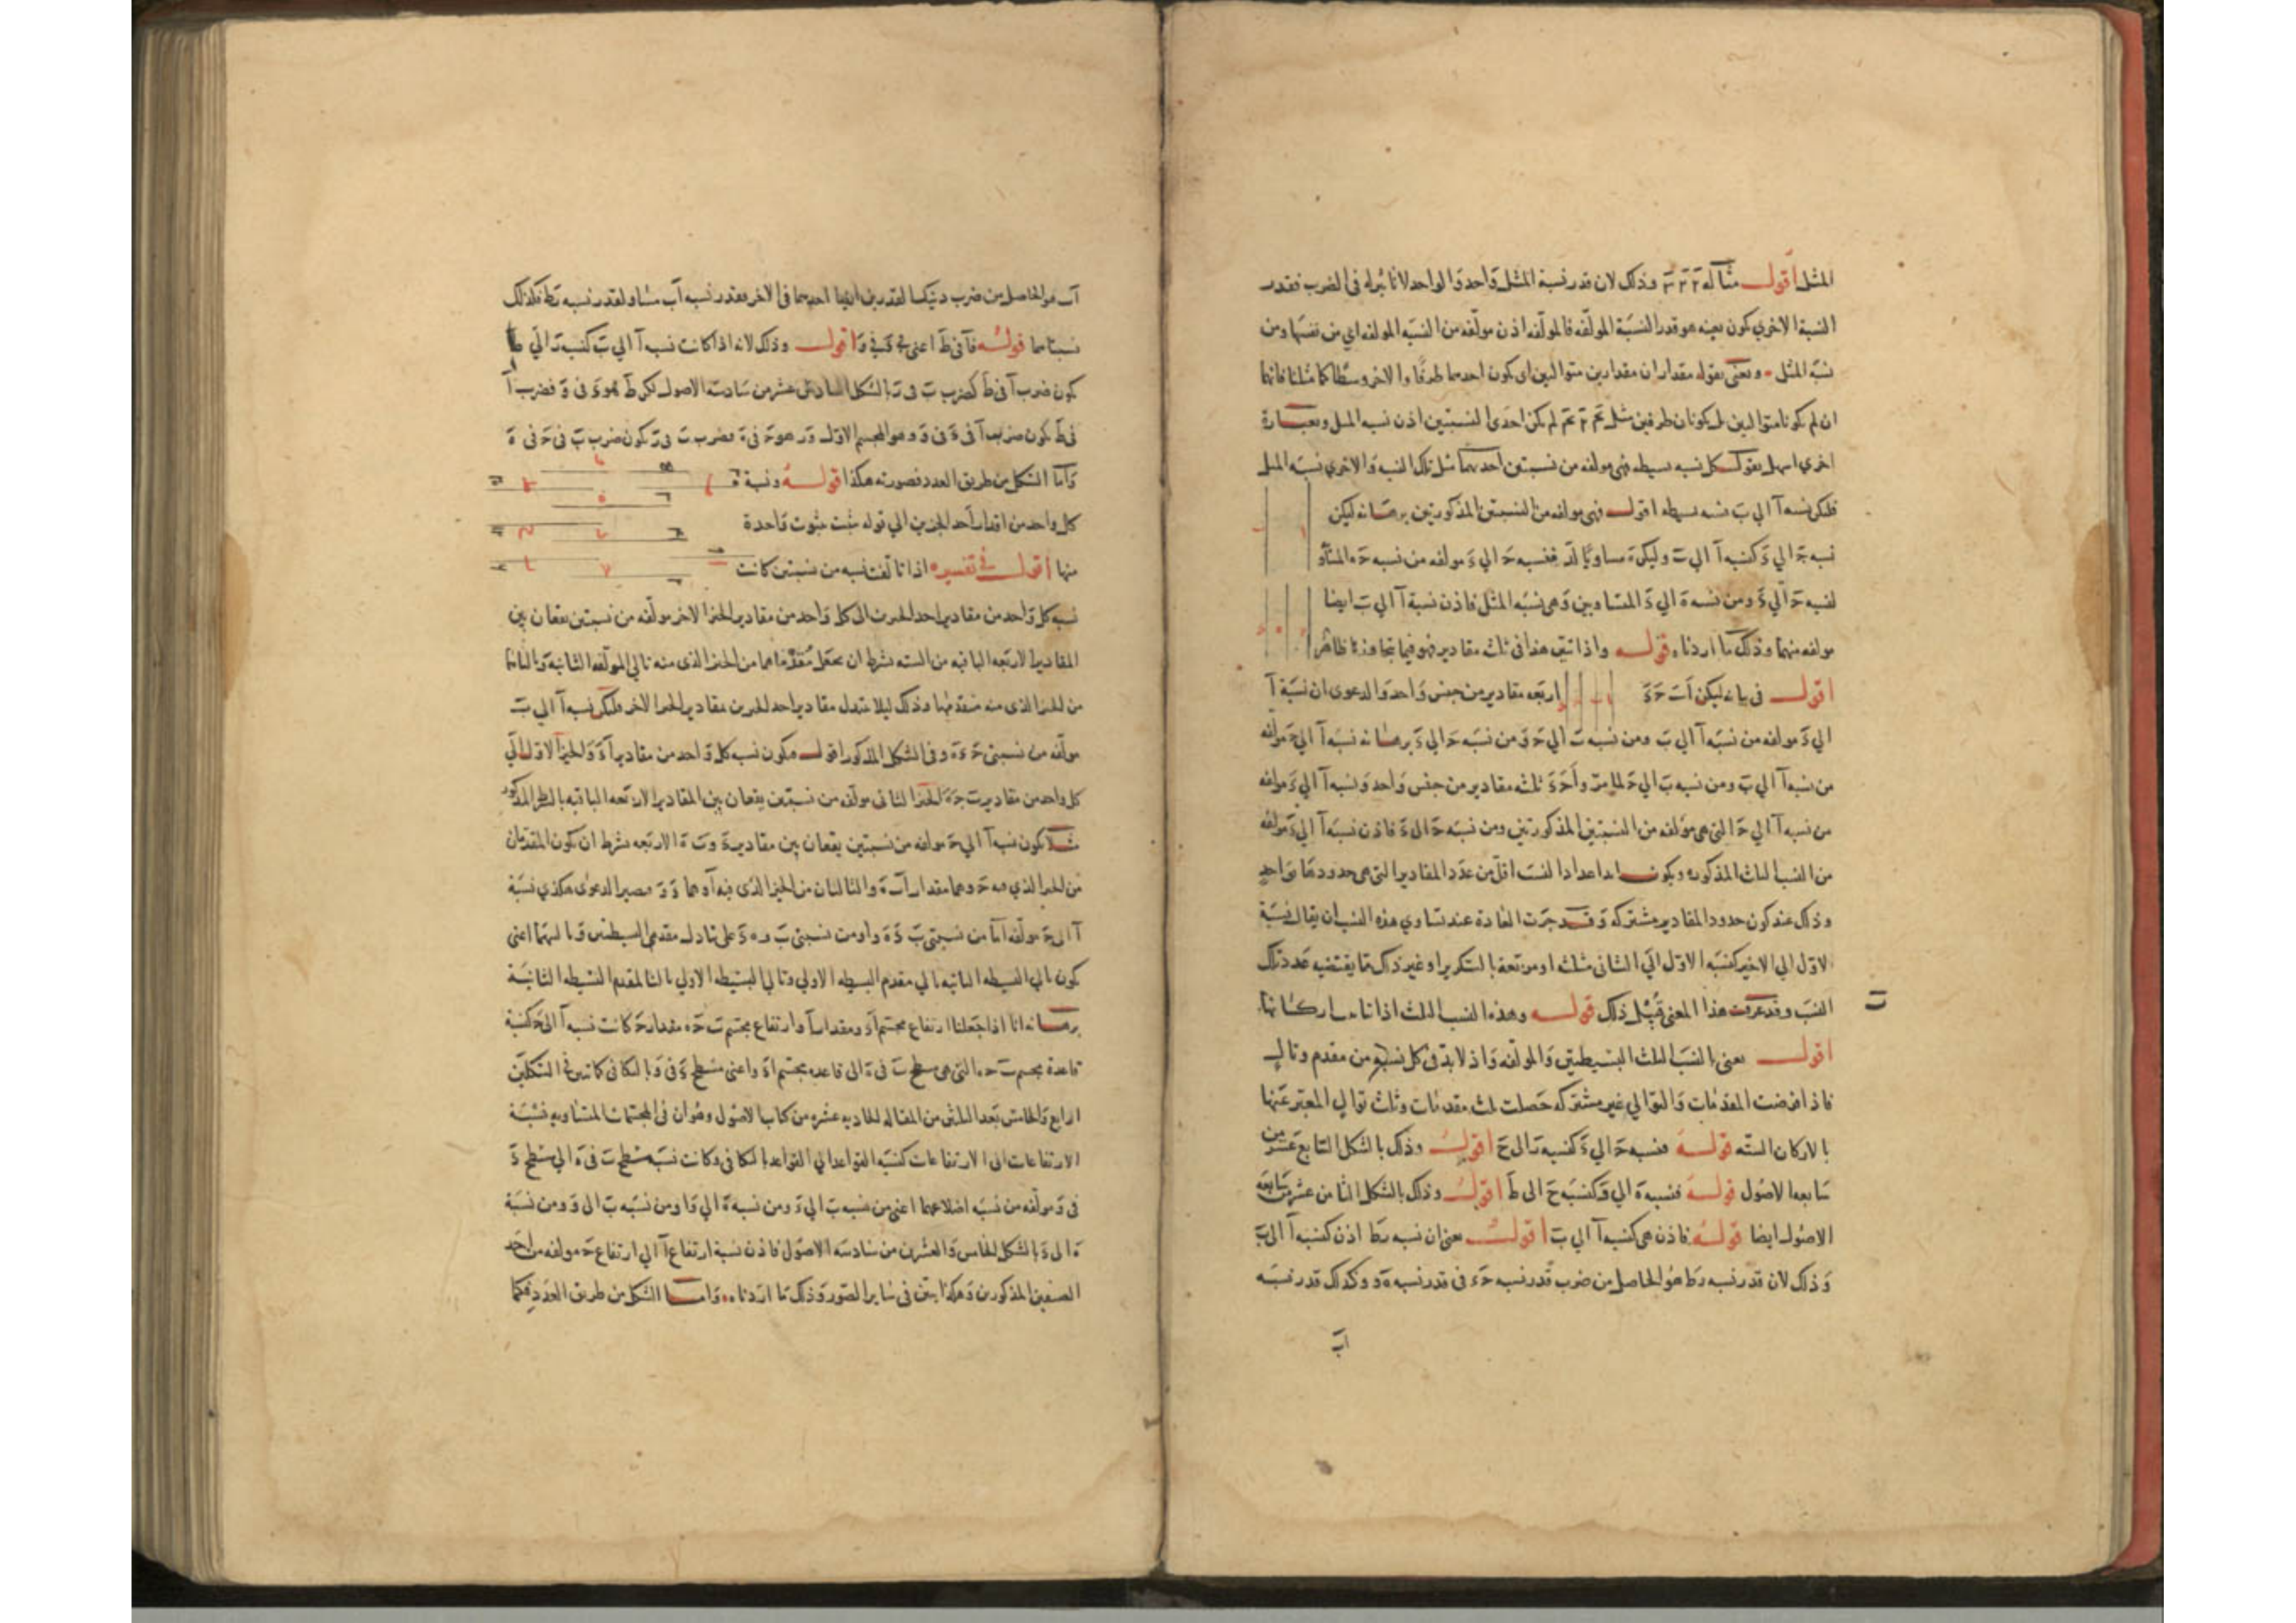 المثل اقول مثاله وذلك لان قدر نسبة المثل واحد والواحد لا تاثير له فى الضرب فقدر
النسبة الاخري يكون بعينه هو قدر النسبة المولفه فالمولفه اذن مولفه من النسبه المولفه اي من نفسها ومن
نسبة المثل ونعنى بقوله مقداران مقدارين متواليين اى يكون احدهما طرفا والاخر وسطا كما مثلنا فانهما
ان لم يكونا متواليين بل يكونان طرفين مثل لم يكن احدى النسبتين اذن نسبه المثل وبعبارة
اخري اسهل نقول كل نسبه بسيطه فهى مولفه من نسبتين احديهما مثل تلك النسبه والاخري نسبة المثل
فلتكن نسبه آ الى بَ نسبه بسيطه اقول فهى مولفه من النسبتين المذكورتين برهانه ليكن
نسبه حَ الي دَ كنسبه آ الي بَ وليكن هَ مساويا لدَ فنسبه حَ الي دَ مولفه من نسبه حَ ه المساو
لنسبه حَ الي دَ ومن نسبه هَ الي دَ المتساويين وهى نسبه المثل فاذن نسبة آ الي بَ ايضا
مولفه منهما وذلك ما اردناه قوله واذا تبين هذا فى ثلث مقادير فهو فيما تجاوزها ظاهر
اقول فى بيانه ليكن اَ بَ حَ دَ اربعه مقادير من جنس واحد والدعوى ان نسبة آ
الي دَ مولفه من نسبة آ الي بَ ومن نسبه بَ الي حَ ومن نسبه حَ الي دَ برهانه نسبه آ الي حَ مولفه
من نسبه آ الي بَ ومن نسبه بَ الي حَ لما مرّ واَ حَ دَ ثلثه مقادير من جنس واحد ونسبه آ الي دَ مولفه
من نسبه آ الي حَ التى هى مولفه من النسبتين المذكورتين ومن نسبه حَ الى دَ فاذن نسبه آ الي دَ مولفه
من النسب الثلث المذكوره ويكون ابدا اعداد النسب اقل من عدد المقادير التى هى حدودها بواحد
وذلك عند كون حدود المقادير مشتركه وقد جرت العادة عند تساوي هذه النسب ان يقال نسبة
الاول الي الاخير كنسبه الاول الي الثانى مثلثه او مربعة بالتكرير او غير ذلك مما يقتضيه عدد تلك
النسب وقد عرفت هذا المعنى قُبيل ذلك قوله وهذه النسب الثلث اذا تباركانها
اقول يعنى بالنسب الثلث البسيطتين والمولفه واذ لا بد فى كل نسبة من مقدم وتال
فاذا فرضت المقدمات والتوالي غير مشتركه حصلت ثلث مقدمات وثلث توالي المعبر عنها
بالاركان السته قوله فنسبه حَ الي دَ كنسبه رَ الى حَ اقول وذلك بالشكل السابع عشر من
سابعه الاصول قوله فنسبه هَ الي وَ كنسبه حَ الى طَ اقول وذلك بالشكل الثامن عشر من سابعه
الاصول ايضا قوله فاذن هى كنسبه آ الي بَ اقول يعنى ان نسبه رَ ط اذن كنسبه آ الى بَ
وذلك لان قدر نسبه رَ ط هو الحاصل من ضرب قدر نسبه حَ د فى قدر نسبه هَ و وكذلك قدر نسبه
اَب
اَب هو الحاصل من ضرب القدرين ايضا احدهما فى الاخر فقدر نسبه اَب مساو لقدر نسبه رَ ط فلذلك
نسبتاهما قوله فآ فى طَ اعنى اقول وذلك لانه اذا كانت نسبه آ الي بَ كنسبه رَ الي ط
يكون ضرب آ فى طَ كضرب بَ فى رَ بالشكل السادس عشر من سادسه الاصول لكن طَ هو دَ فى وَ فضرب آ
فى طَ يكون ضرب آ فى دَ فى وَ وهو المجسم الاول ورَ هو حَ فى هَ فضرب بَ فى رَ يكون ضرب بَ فى حَ فى هَ
وَاما الشكل من طريق العدد فصورته هكذا قوله ونسبة
كل واحد من اقدار احد الجزين الي قوله ثبت بثبوت واحدة
منها اقول فى تفسيره اذا تالفت نسبه من نسبتين كانت
نسبه كل واحد من مقادير احد الحيزين الى كل واحد من مقادير الحيز الاخر مولفه من نسبتين يقعان بين
المقادير الاربعه الباقيه من السته بشرط ان يجعل مُقدماهما من الحيز الذى منه تالي المولفه الثانيه وتالياهما
من الحيز الذى منه مقدمها وذلك ليلا تتبدل مقادير احد الحيزين بمقادير الحيز الاخر فلتكن نسبه آ الي بَ
مولفه من نسبتى حَ دَ هَ وَ فى الشكل المذكور اقول فيكون نسبه كل واحد من مقادير آ دَ وَ الحيز الاول الي
كل واحد من مقادير بَ حَ هَ الحيز الثانى مولفه من نسبتين يقعان بين المقادير الاربعه الباقيه بالشرط المذكور
مثلا يكون نسبه آ الي حَ مولفه من نسبتين يقعان بين مقادير دَ وَ بَ هَ الاربعه بشرط ان يكون المقدمان
من الحيز الذي فيه حَ وهما مقدارا بَ هَ والتاليان من الحيز الذى فيه آ وهما دَ وَ فيصير الدعوى هكذي نسبة
آ الى حَ مولفه اما من نسبتى بَ دَ هَ وَ او من نسبتى بَ وَ هَ دَ على تبادل مقدمى البسيطتين وتاليهما اعنى
يكون تالي البسيطه الثانيه تالي مقدم البسيطه الاولي وتالي البسيطه الاولي تاليا لمقدم البسيطه الثانية
برهانه انا اذا جعلنا ارتفاع مجسم آ دَ وَ مقدار آ وارتفاع مجسم بَ حَ ه مقدار حَ كانت نسبه آ الى حَ كنسبة
قاعدة مجسم بَ حَ ه التى هى سطح بَ فى هَ الى قاعده مجسم آ دَ وَ اعنى سطح دَ فى وَ بالتكافى كما تبين فى الشكلين
الرابع والخامس بعد الثلثين من المقاله الحاديه عشره من كتاب الاصول وهو ان فى المجسمات المتساويه نسبة
الارتفاعات الى الارتفاعات كنسبه القواعد الي القواعد بالتكافى وكانت نسبه سطح بَ فى هَ الي سطح دَ
فى وَ مولفه من نسبه اضلاعهما اعنى من نسبه بَ الي دَ ومن نسبه هَ الي وَ او من نسبه بَ الى وَ ومن نسبة
هَ الى دَ بالشكل الخامس والعشرين من سادسه الاصول فاذن نسبة ارتفاع آ الي ارتفاع حَ مولفه من احد
الصنفين المذكورين وهكذا يتبين فى ساير الصور وذلك ما اردناه وَاما الشكل من طريق العدد فكما